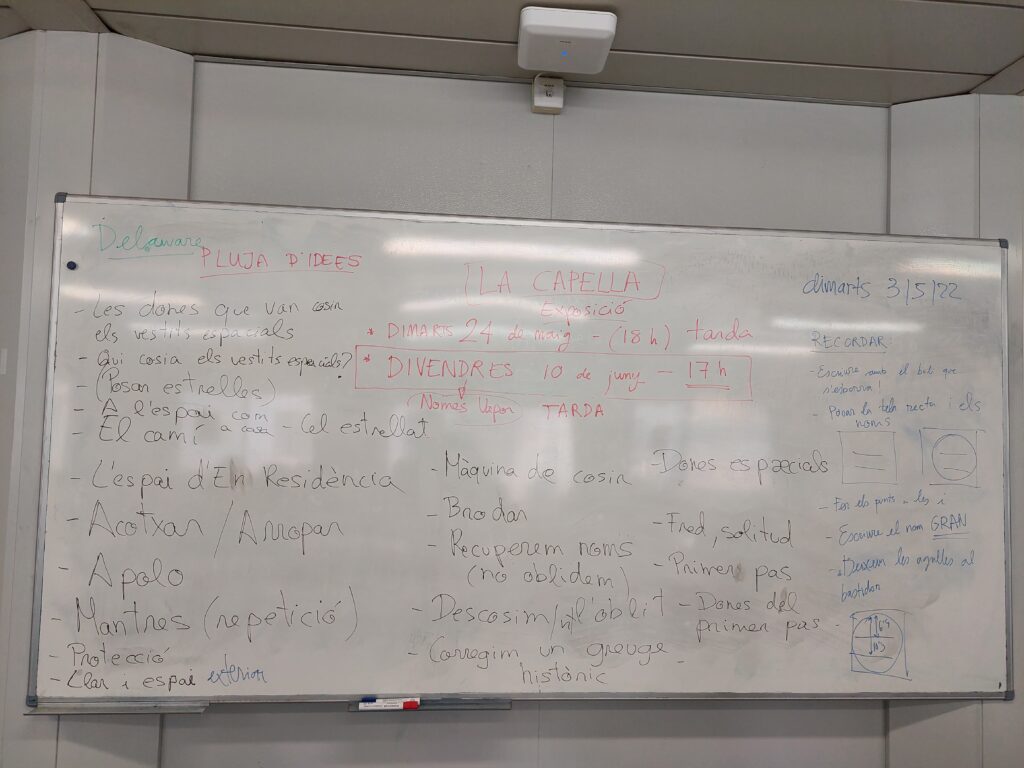 Delaware
PLUJA D'IDEES
- Les dones que van cosir
els vestits espacials
- Qui cosia els vestits espacials?
- (Posar estrelles)
- A l'espai com
a casa
- El camí
- Cel estrellat
- L'espai d'En Residència
- Acotxar / Arropar
- Apolo
- Mantres (repetició)
- Protecció
- Clar i espai exterior
LA CAPELLA
Exposició
* DIMARTS 24 de maig - (18 h) tarda
* DIVENDRES 10 de juny - 17 h
Només Vapor TARDA
- Màquina de cosir
- Brodar
- Recuperem noms
(no oblidem)
- Descosim l'oblit
- Corregim un greuge
històric
- Dones espacials
- Fred, solitud
- Primer pas
- Dones del
primer pas
dimarts 3/5/22
RECORDAR
- Escriure amb el boli que
s'esborra!
- Posar la tela recta i els
noms
- Fer els punts
- Escriure el nom GRAN
- Deixem les agulles al
bastidor